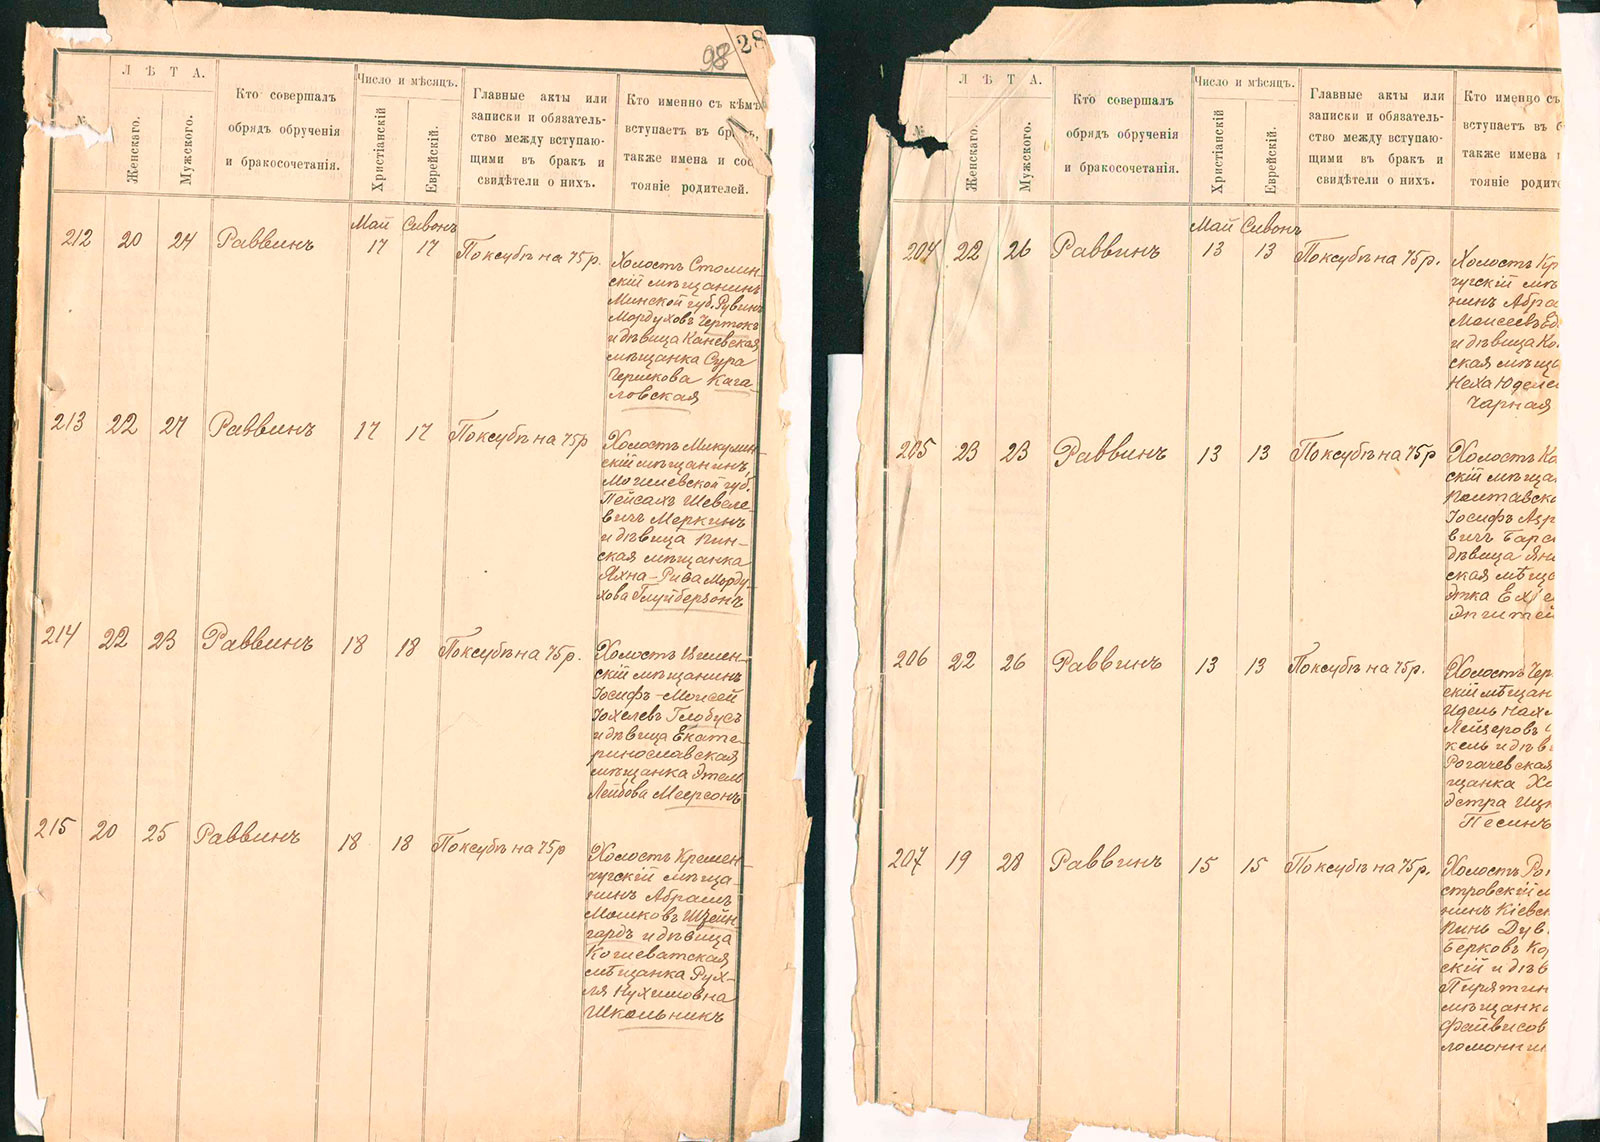 98 28
№
ЛѢТА.
Женскаго.
Мужского.
Кто совершалъ
обрядъ обрученія
и бракосочетанія.
Число и мѣсяцъ.
Христіанскій
Еврейскій.
Главные акты или
записки и обязатель-
ство между вступаю-
щими въ бракъ и
свидѣтели о нихъ.
Кто именно съ кѣмъ
вступаетъ въ бракъ,
также имена и сос
тояніе родителей.
Май Сивонъ
212 20 24 Раввинъ 17 17 Поксубѣ на 75 р.
Холостъ Столин-
скій мѣщанинъ
Минской губ. Рувинъ
Мордуховъ Чертокъ
и дѣвица Каневская
мѣщанка Сура
Гершкова Кага-
ловская
213 22 27 Раввинъ 17 17 Поксубѣ на 75р
Холостъ Микулин-
скій мѣщанинъ,
Могилевской губ.
Пейсахъ Шевеле-
вичъ Меркинъ
и дѣвица Пин-
ская мѣщанка
Яхна-Рива Морду-
хова
214 22 23 Раввинъ 18 18 Поксубѣ на 75р.
Холостъ Игумен-
скій мѣщанинъ
Іосифъ-Моисей
Іохелевъ Глобусъ
и дѣвица Екате-
ринославская
мѣщанка Этель
Лейбова Меерсонъ
215 20 25 Раввинъ 18 18 Поксубѣ на 75р
Холостъ Кремен-
чугскій мѣща-
нинъ Абрамъ
Мошковъ Штейн-
гардъ и дѣвица
Кошеватская
мѣщанка Рух-
ля Нухимовна
Школьникъ
№
ЛѢТА.
Женскаго.
Мужского.
Кто совершалъ
обрядъ обрученія
и бракосочетанія.
Число и мѣсяцъ.
Христіанскій
Еврейскій.
Главные акты или
записки и обязатель-
ство между вступаю-
щими въ бракъ и
свидѣтели о нихъ.
Кто именно съ
вступаетъ въ б
также имена и
тояніе родите
Май Сивонъ
204 22 26 Раввинъ 13 13 Поксубѣ на 75р.
Холостъ Кр
чугскій мѣ
нинъ Абра
Моисеевъ Ед
и дѣвица Ко
ская мѣща
Неха Юделе
Чарная
205 23 23 Раввинъ 13 13 Поксубѣ на 75р
Холостъ Ко
скій мѣща
Полтавск
Іосифъ Азр
вичъ Барс
дѣвица Ян
ская мѣща
Этка Ех
206 22 26 Раввинъ 13 13 Поксубѣ на 75р.
Холостъ Чер
скій мѣщан
Идель Нах
Лейзеровъ
кель и дѣв
Рогачевская
щанка Ха
Эстра Иц
Песинъ
207 19 28 Раввинъ 15 15 Поксубѣ на 75р.
Холостъ Ро
стровскій м
нинъ Кіевск
Пинь Дув
Берковъ Ко
скій и дѣв
Пирятин
мѣщанка
Файвисов